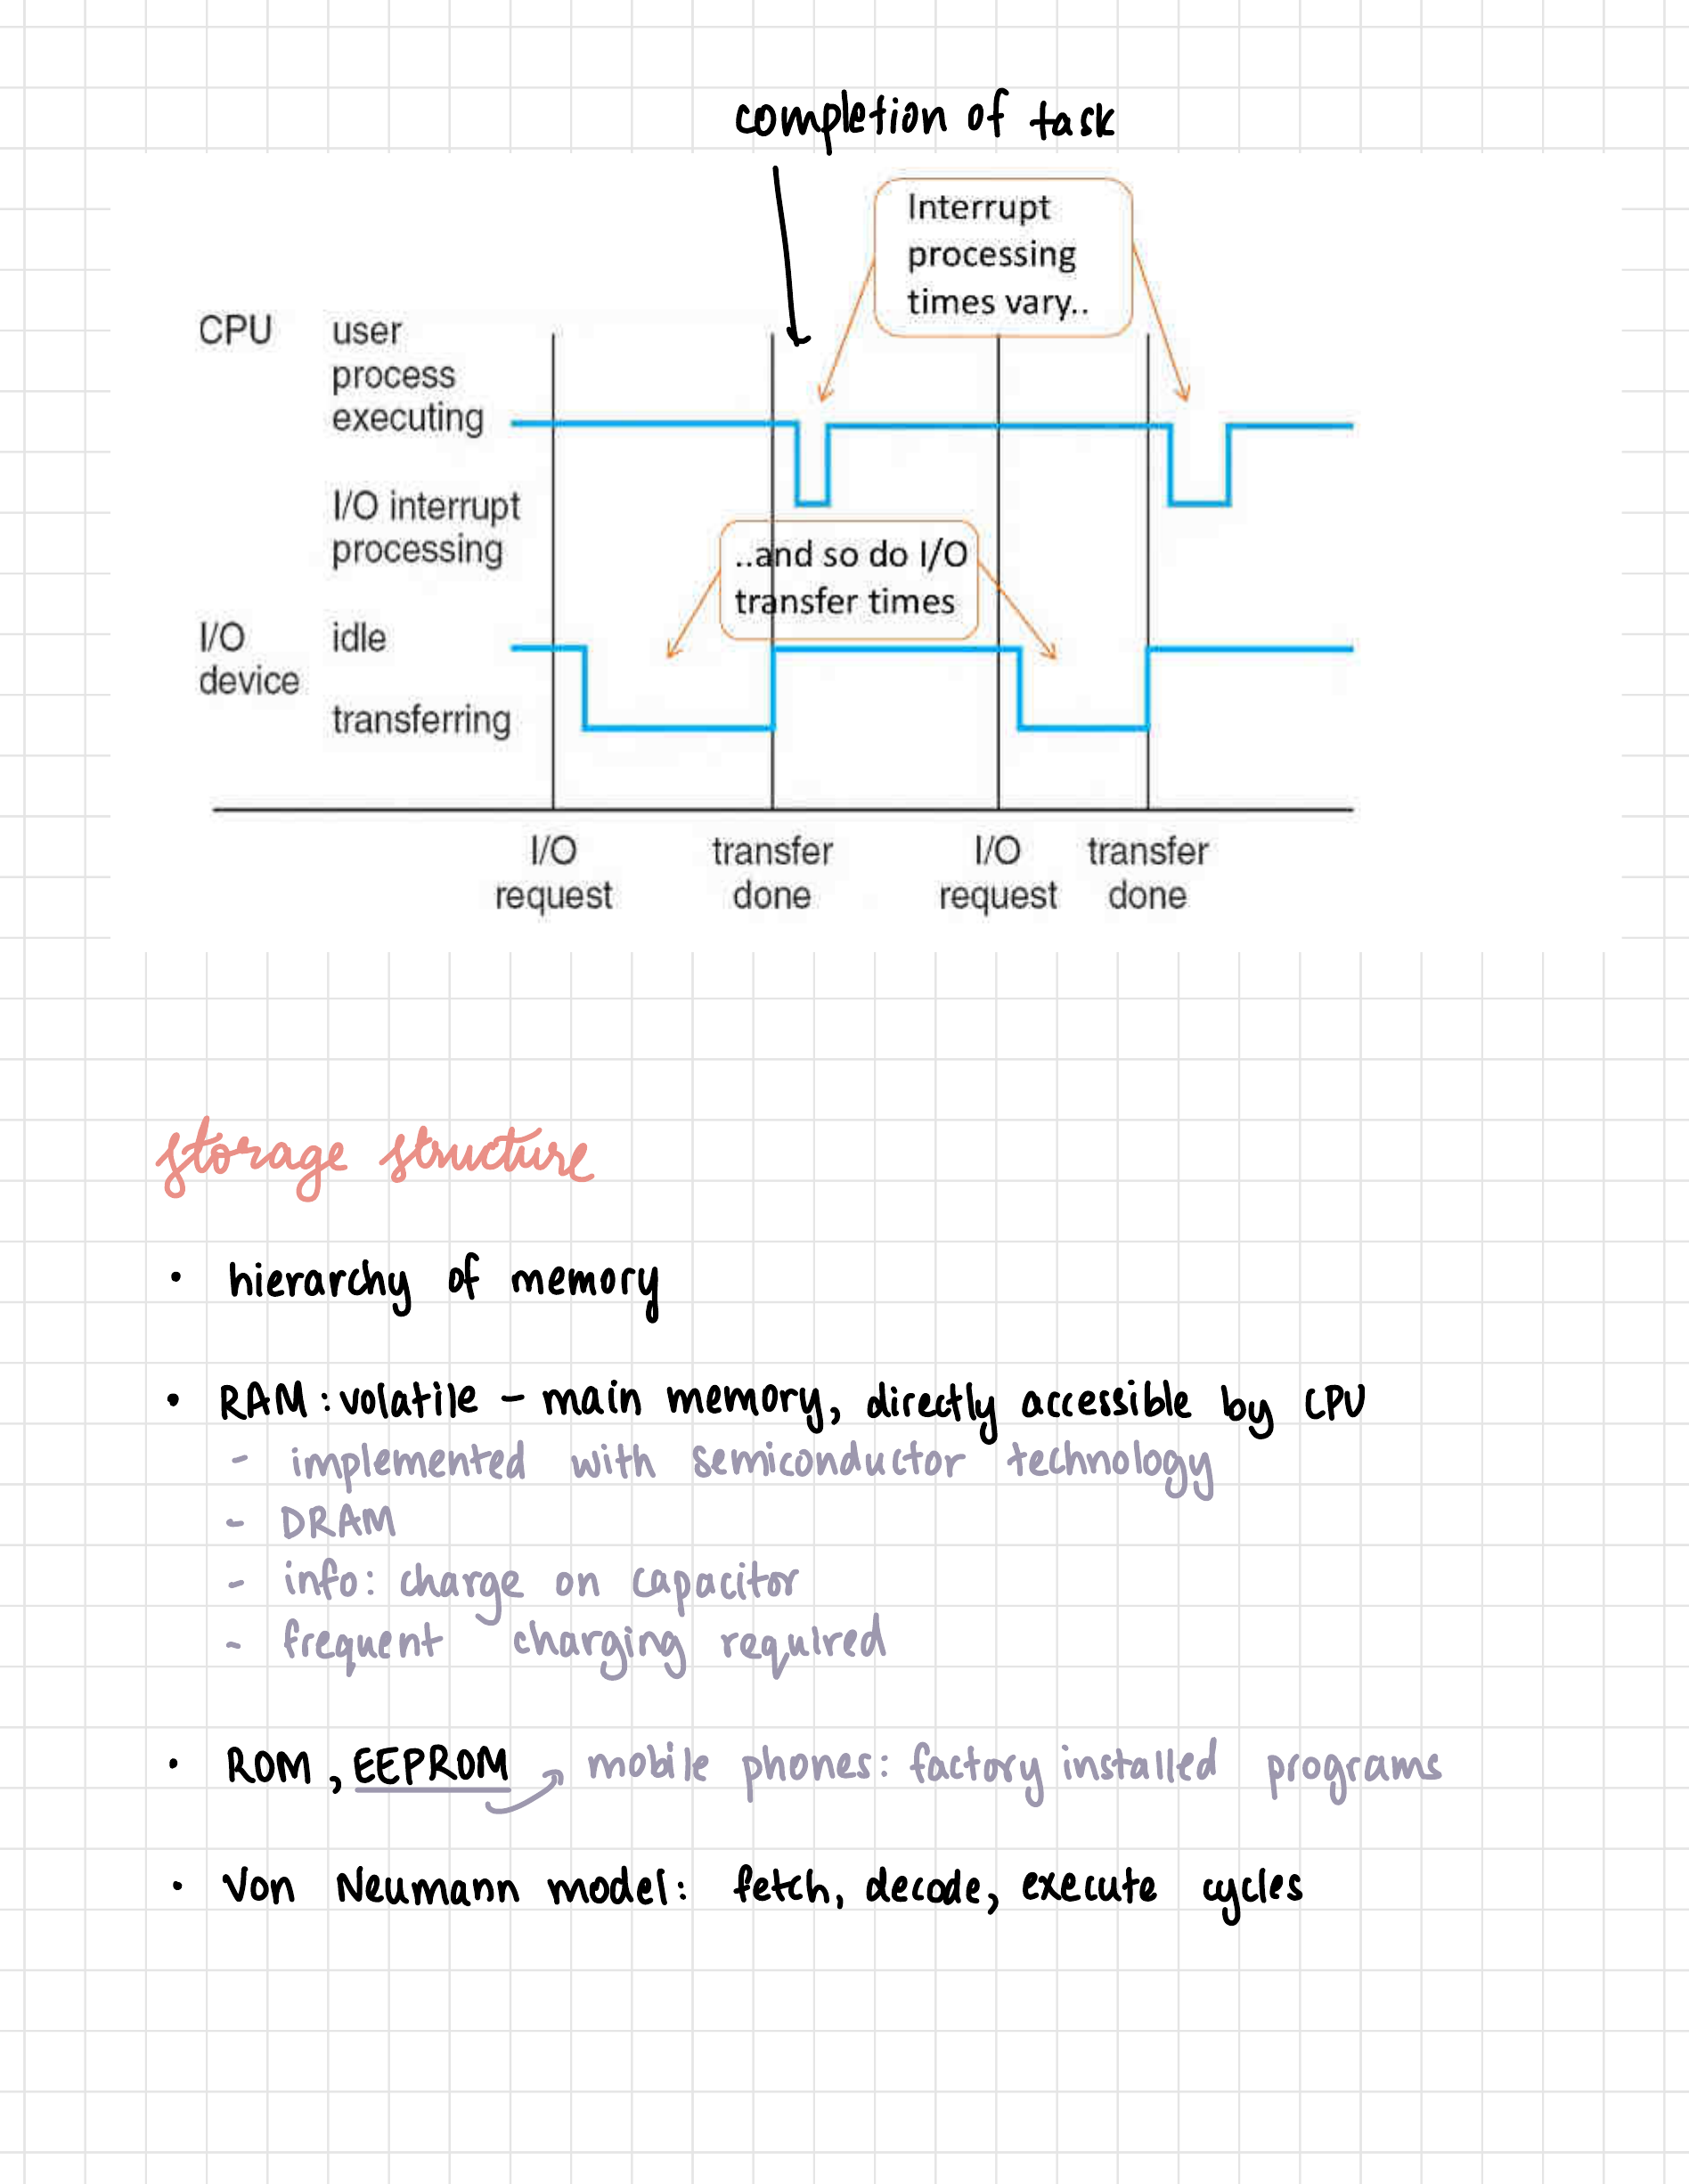 completion of task
Interrupt
processing
times vary..
CPU user
process
executing
I/O interrupt
processing
..and so do I/O
transfer times
I/O idle
device
transferring
I/O transfer I/O transfer
request done request done
storage structure
• hierarchy of memory
• RAM : volatile – main memory, directly accessible by CPU
- implemented with semiconductor technology
- DRAM
- info: charge on capacitor
- frequent charging required
• ROM, EEPROM → mobile phones: factory installed programs
• Von Neumann model: fetch, decode, execute cycles